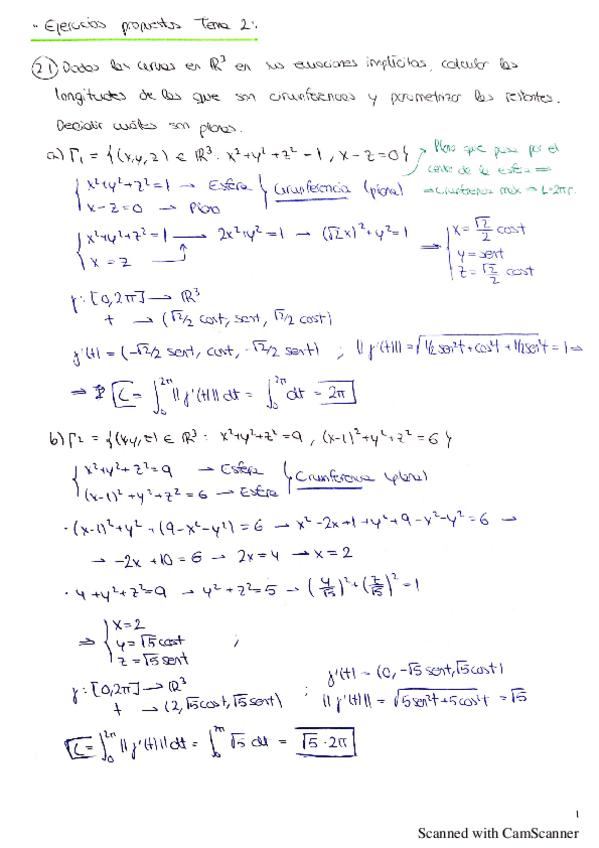 - Ejercicios propuestos Tema 2:
2.1 Dadas las curvas en ℝ³ en sus ecuaciones implícitas, calcular las
longitudes de las que son circunferencias y parametrizar las restantes.
Decidir cuáles son planas.
a) Γ₁ = {(x,y,z) ∈ ℝ³ : x²+y²+z² = 1, x-z=0}
Plano que pasa por el
centro de la esfera ⇒
⇒ circunferencia máx ⇒ L=2πr.
{ x²+y²+z²=1 → Esfera
x-z=0 → Plano } Circunferencia (plana)
{ x²+y²+z²=1 → 2x²+y²=1 → (√2x)²+y²=1
x = z
⇒ { x = √2/2 cost
y = sent
z = √2/2 cost
γ: [0,2π] → ℝ³
t → (√2/2 cost, sent, √2/2 cost)
γ'(t) = (-√2/2 sent, cost, -√2/2 sent) ; ||γ'(t)|| = √(1/2 sen²t + cos²t + 1/2 sen²t) = 1 ⇒
⇒ L = ∫₀^2π ||γ'(t)|| dt = ∫₀^2π dt = 2π
b) Γ₂ = {(x,y,z) ∈ ℝ³ : x²+y²+z²=9, (x-1)²+y²+z²=6}
{ x²+y²+z²=9 → Esfera
(x-1)²+y²+z²=6 → Esfera } Circunferencia (plana)
· (x-1)²+y²+(9-x²-y²)=6 → x²-2x+1+y²+9-x²-y²=6 →
→ -2x+10=6 → 2x=4 → x=2
· 4+y²+z²=9 → y²+z²=5 → (y/√5)²+(z/√5)²=1
⇒ { x=2
y=√5cost ;
z=√5sent
γ: [0,2π] → ℝ³
t → (2,√5cost,√5sent) ;
γ'(t) = (0, -√5sent,√5cost)
||γ'(t)|| = √(5sen²t+5cos²t) = √5
L = ∫₀^2π ||γ'(t)|| dt = ∫₀^2π √5 dt = √5·2π
1
Scanned with CamScanner